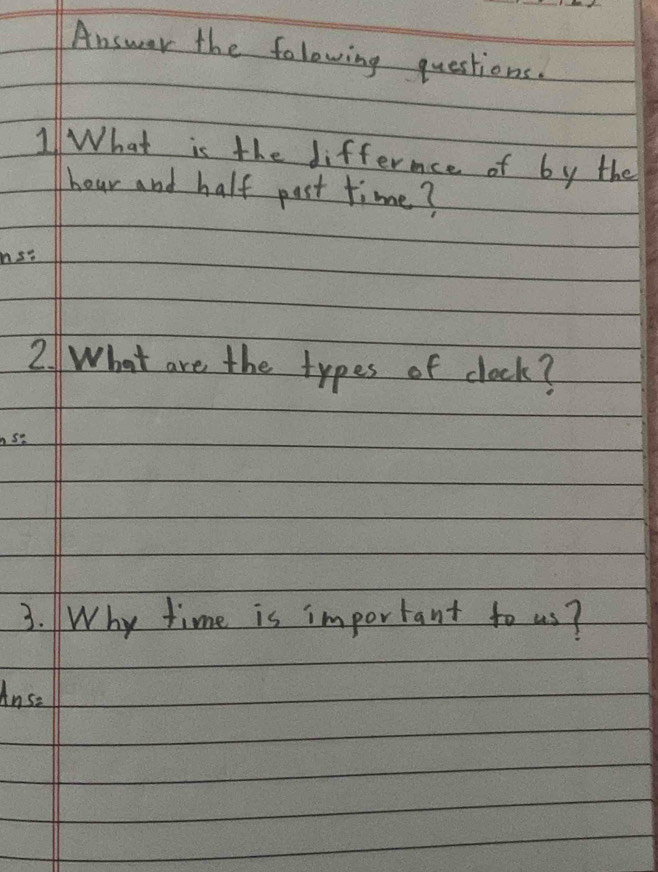 Answer the folowing questions.
1. What is the differnce of by the
hour and half past time?
ns:
2. What are the types of clock?
ns:
3. Why time is important to us?
Ans: